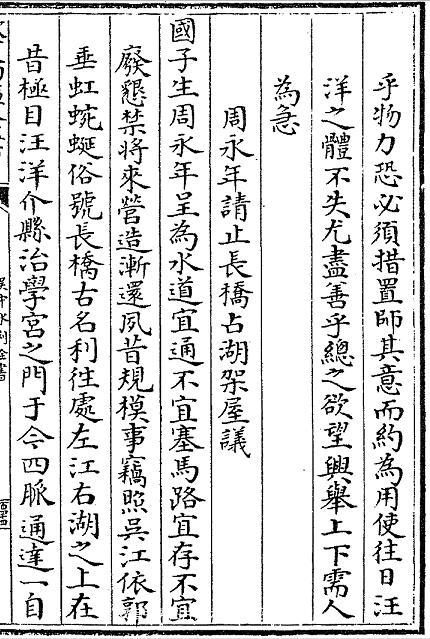 乎物力恐必須措置師其意而約為用使往日汪
洋之體不失尤盡善乎總之欲望興舉上下需人
為急
周永年請止長橋占湖架屋議
國子生周永年呈為水道宜通不宜塞馬路宜存不宜
廢懇禁將來營造漸還夙昔規模事竊照吳江依郭
垂虹蜿蜒俗號長橋古名利往處左江右湖之上在
昔極目汪洋介縣治學宮之門于今四脈通達一自
吳中水利全書